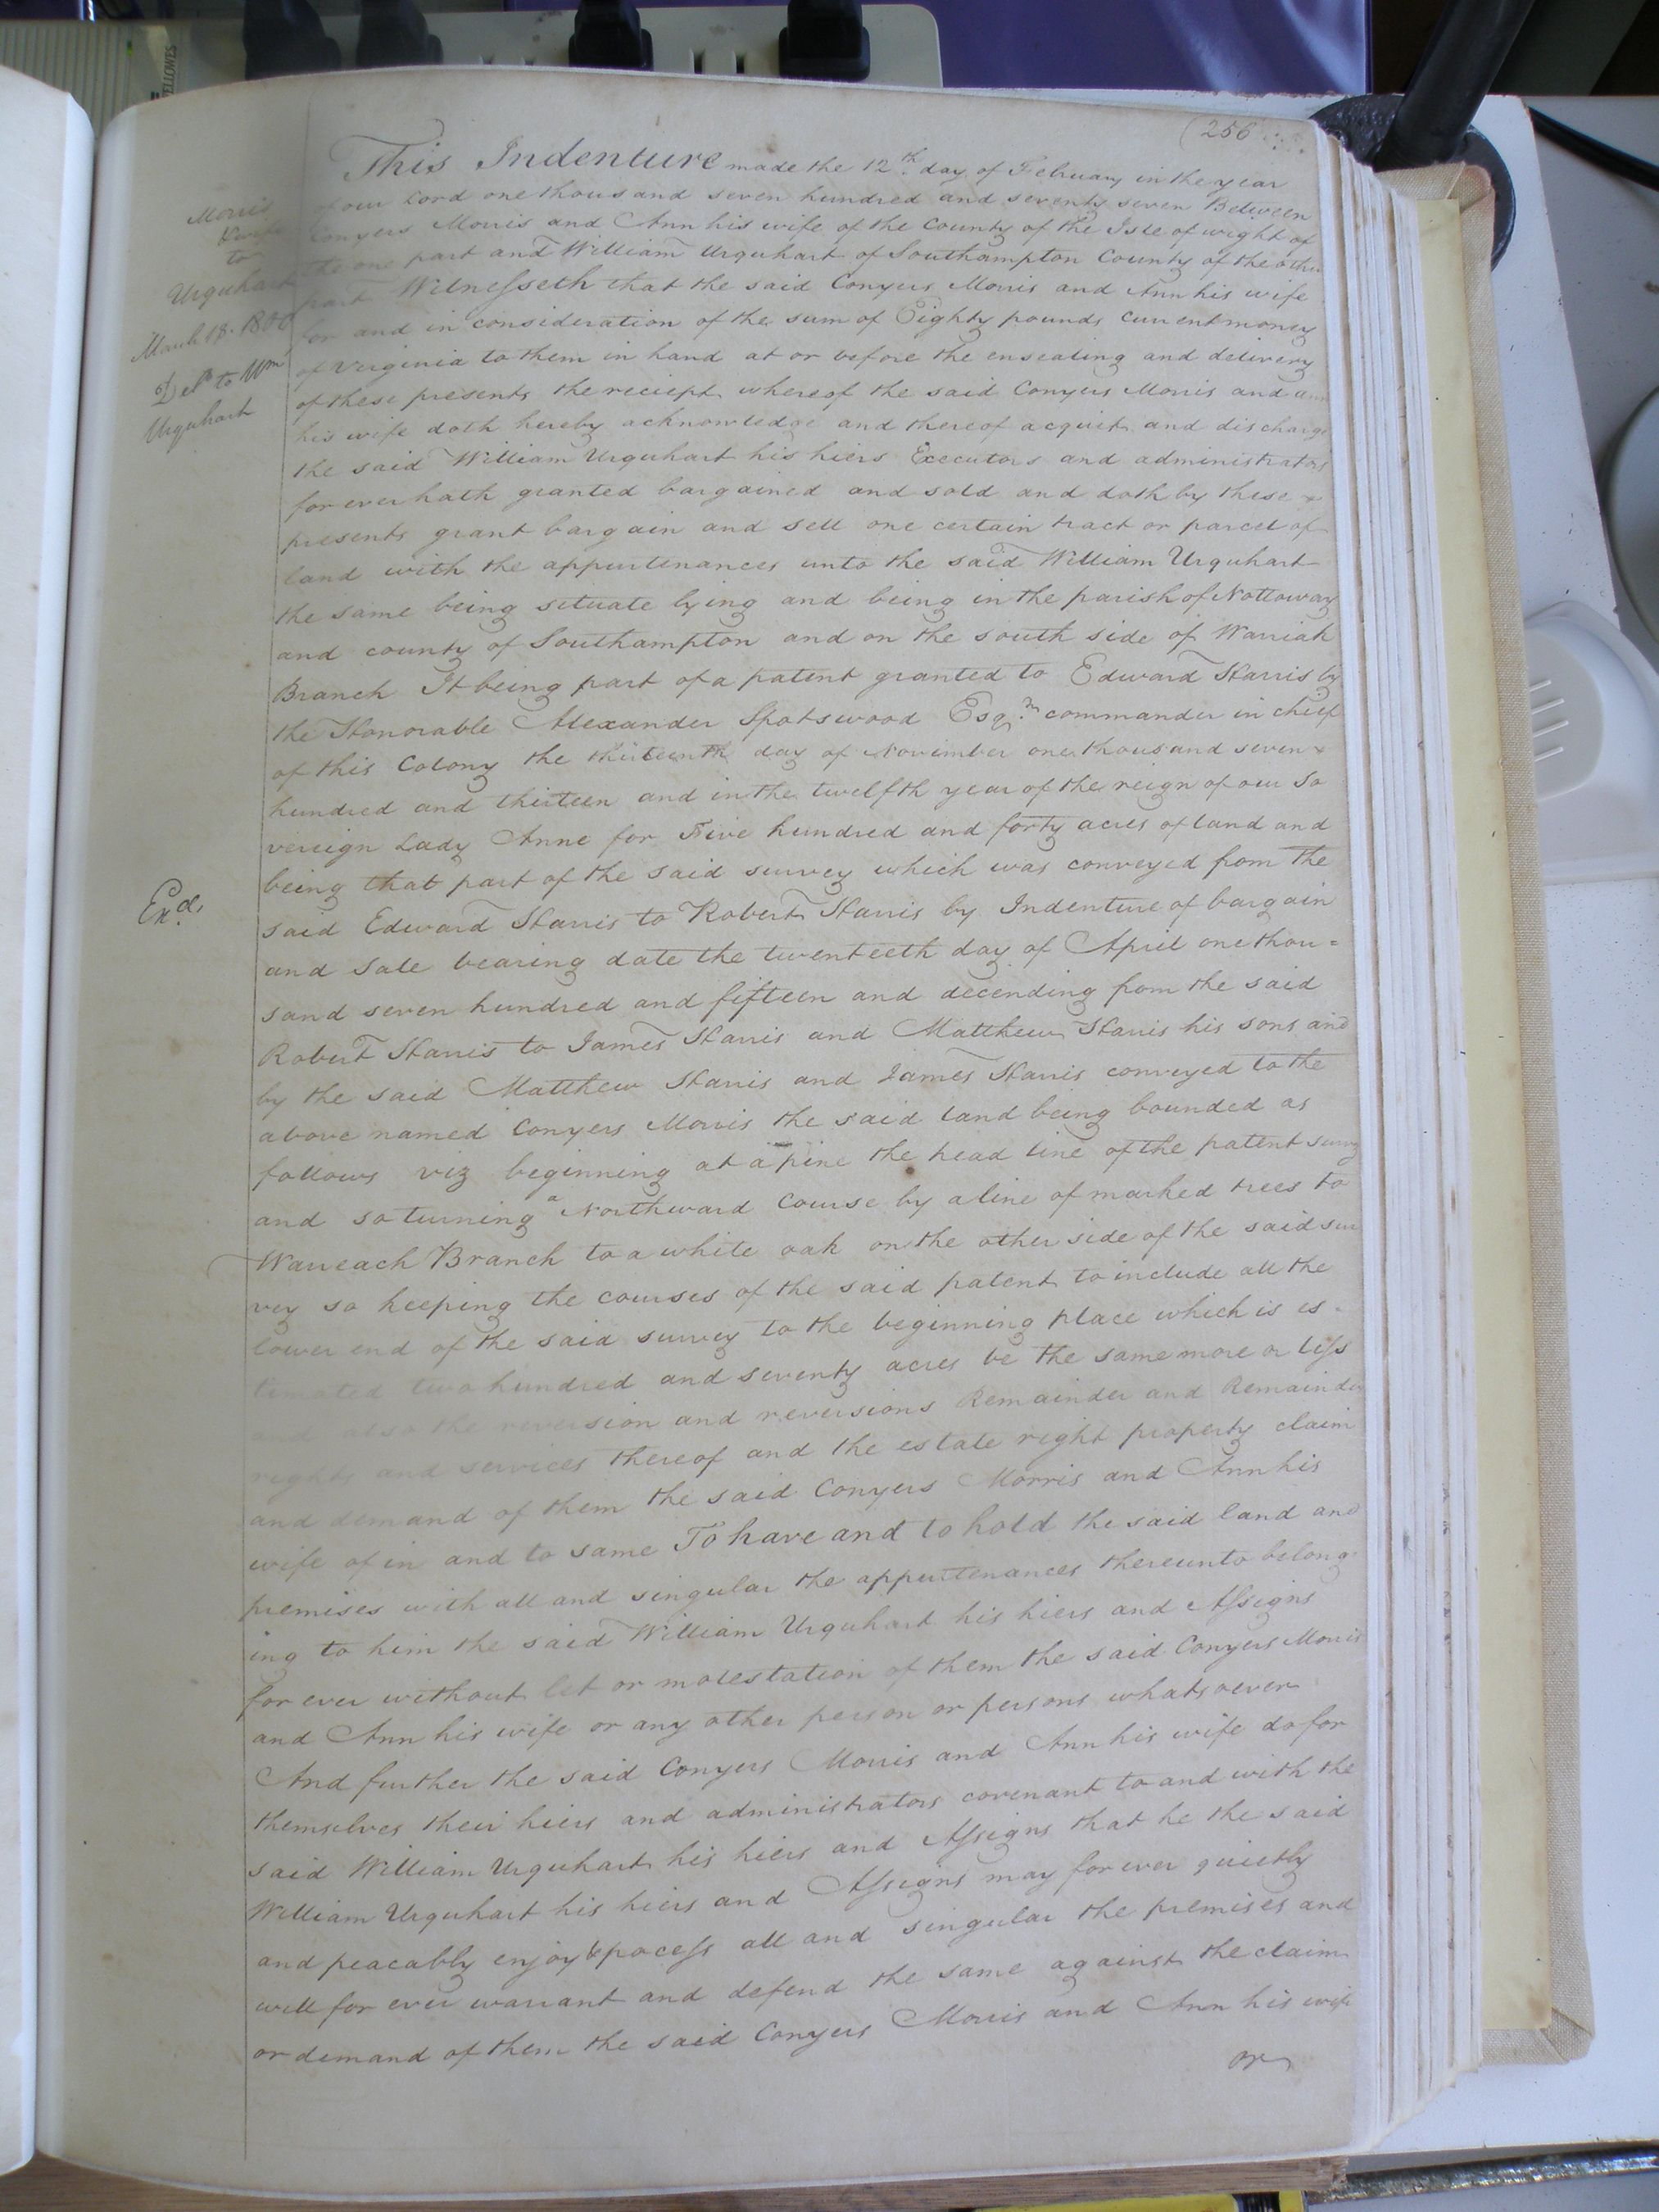 (256
This Indenture made the 12th day of February in the year
of our Lord one thousand seven hundred and seventy seven Between
Conyers Morris and Ann his wife of the County of the Isle of wight of
the one part and William Urquhart of Southampton County of the other
part Witnesseth that the said Conyers Morris and Ann his wife
for and in consideration of the sum of Eighty pounds current money
of Virginia to them in hand at or before the ensealing and delivery
of these presents the reciept whereof the said Conyers Morris and ann
his wife doth hereby acknowledge and thereof acquit and discharge
the said William Urquhart his hiers Executors and administrators
for ever hath granted bargained and sold and doth by these
presents grant bargain and sell one certain tract or parcel of
land with the appurtenances unto the said William Urquhart
the same being situate lying and being in the parish of Nottoway
and county of Southampton and on the south side of Warriah
Branch It being part of a patent granted to Edward Harris by
the Honorable Alexander Spotswood Esqr. commander in chief
of this Colony the thirteenth day of November one thousand seven
hundred and thirteen and in the twelfth year of the reign of our So
vereign Lady Anne for Five hundred and forty acres of land and
being that part of the said survey which was conveyed from the
said Edward Harris to Robert Harris by Indenture of bargain
and Sale bearing date the twenteeth day of April one thou=
sand seven hundred and fifteen and decending from the said
Robert Harris to James Harris and Matthew Harris his sons and
by the said Matthew Harris and James Harris conveyed to the
above named Conyers Morris the said land being bounded as
follows viz beginning at a pine the head line of the patent survey
and so turning a Northward Course by a line of marked trees to
Warreach Branch to a white oak on the other side of the said sur
vey so keeping the courses of the said patent to include all the
lower end of the said survey to the beginning place which is es-
timated two hundred and seventy acres be the same more or less
and also the reversion and reversions Remainder and Remainder
rights and services thereof and the estate right property claim
and demand of them the said Conyers Morris and Ann his
wife of in and to same To have and to hold the said land and
premises with all and singular the appurtenances thereunto belong
ing to him the said William Urquhart his hiers and Assigns
for ever without let or molestation of them the said Conyers Morris
and Ann his wife or any other person or persons whatsoever
And further the said Conyers Morris and Ann his wife do for
themselves their hiers and administrators covenant to and with the
said William Urquhart his hiers and Assigns that he the said
William Urquhart his hiers and Assigns may for ever quietly
and peacably enjoy & pocess all and singular the premises and
will for ever warrant and defend the same against the claim
or demand of them the said Conyers Morris and Ann his wife
or
Morris
& wife
to
Urquhart
March 18. 1800
Deld to Wm
Urquhart
Exd.
ELLOWES